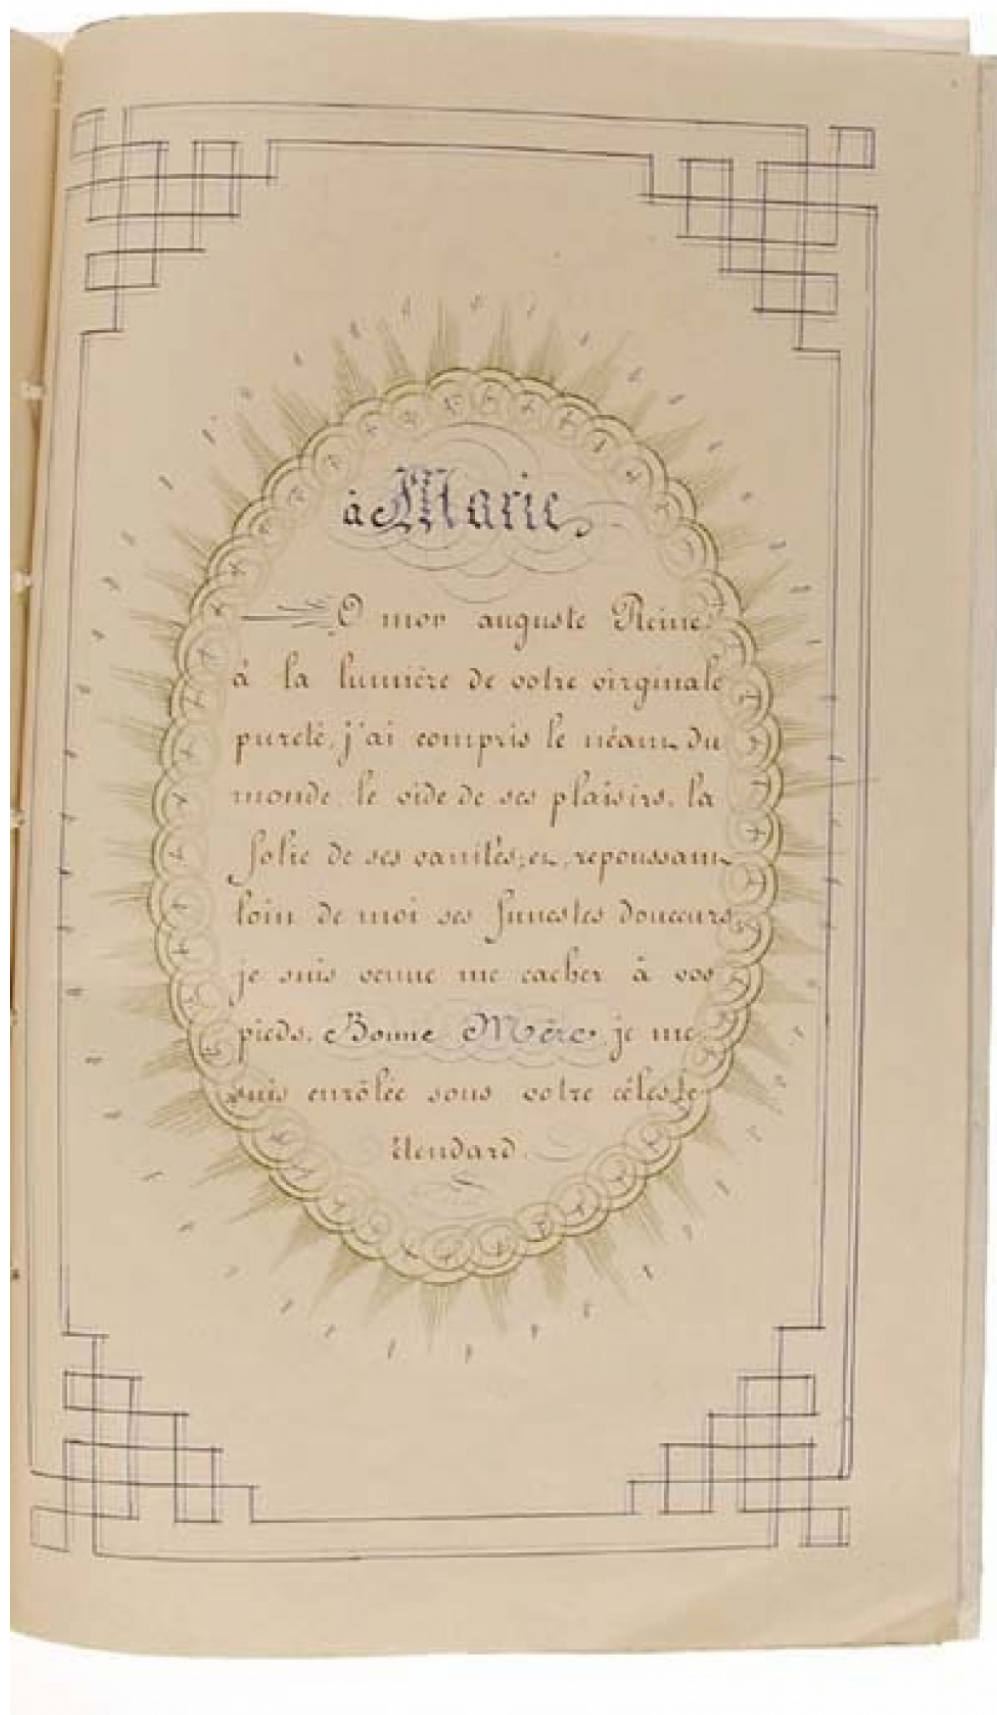 à Marie
O mon auguste Reine
à la lumière de votre virginale
pureté, j'ai compris le néant du
monde, le vide de ses plaisirs, la
folie de ses vanités; et, repoussant
loin de moi ses funestes douceurs,
je suis venue me cacher à vos
pieds. Bonne Mère, je me
suis enrôlée sous votre céleste
étendard.